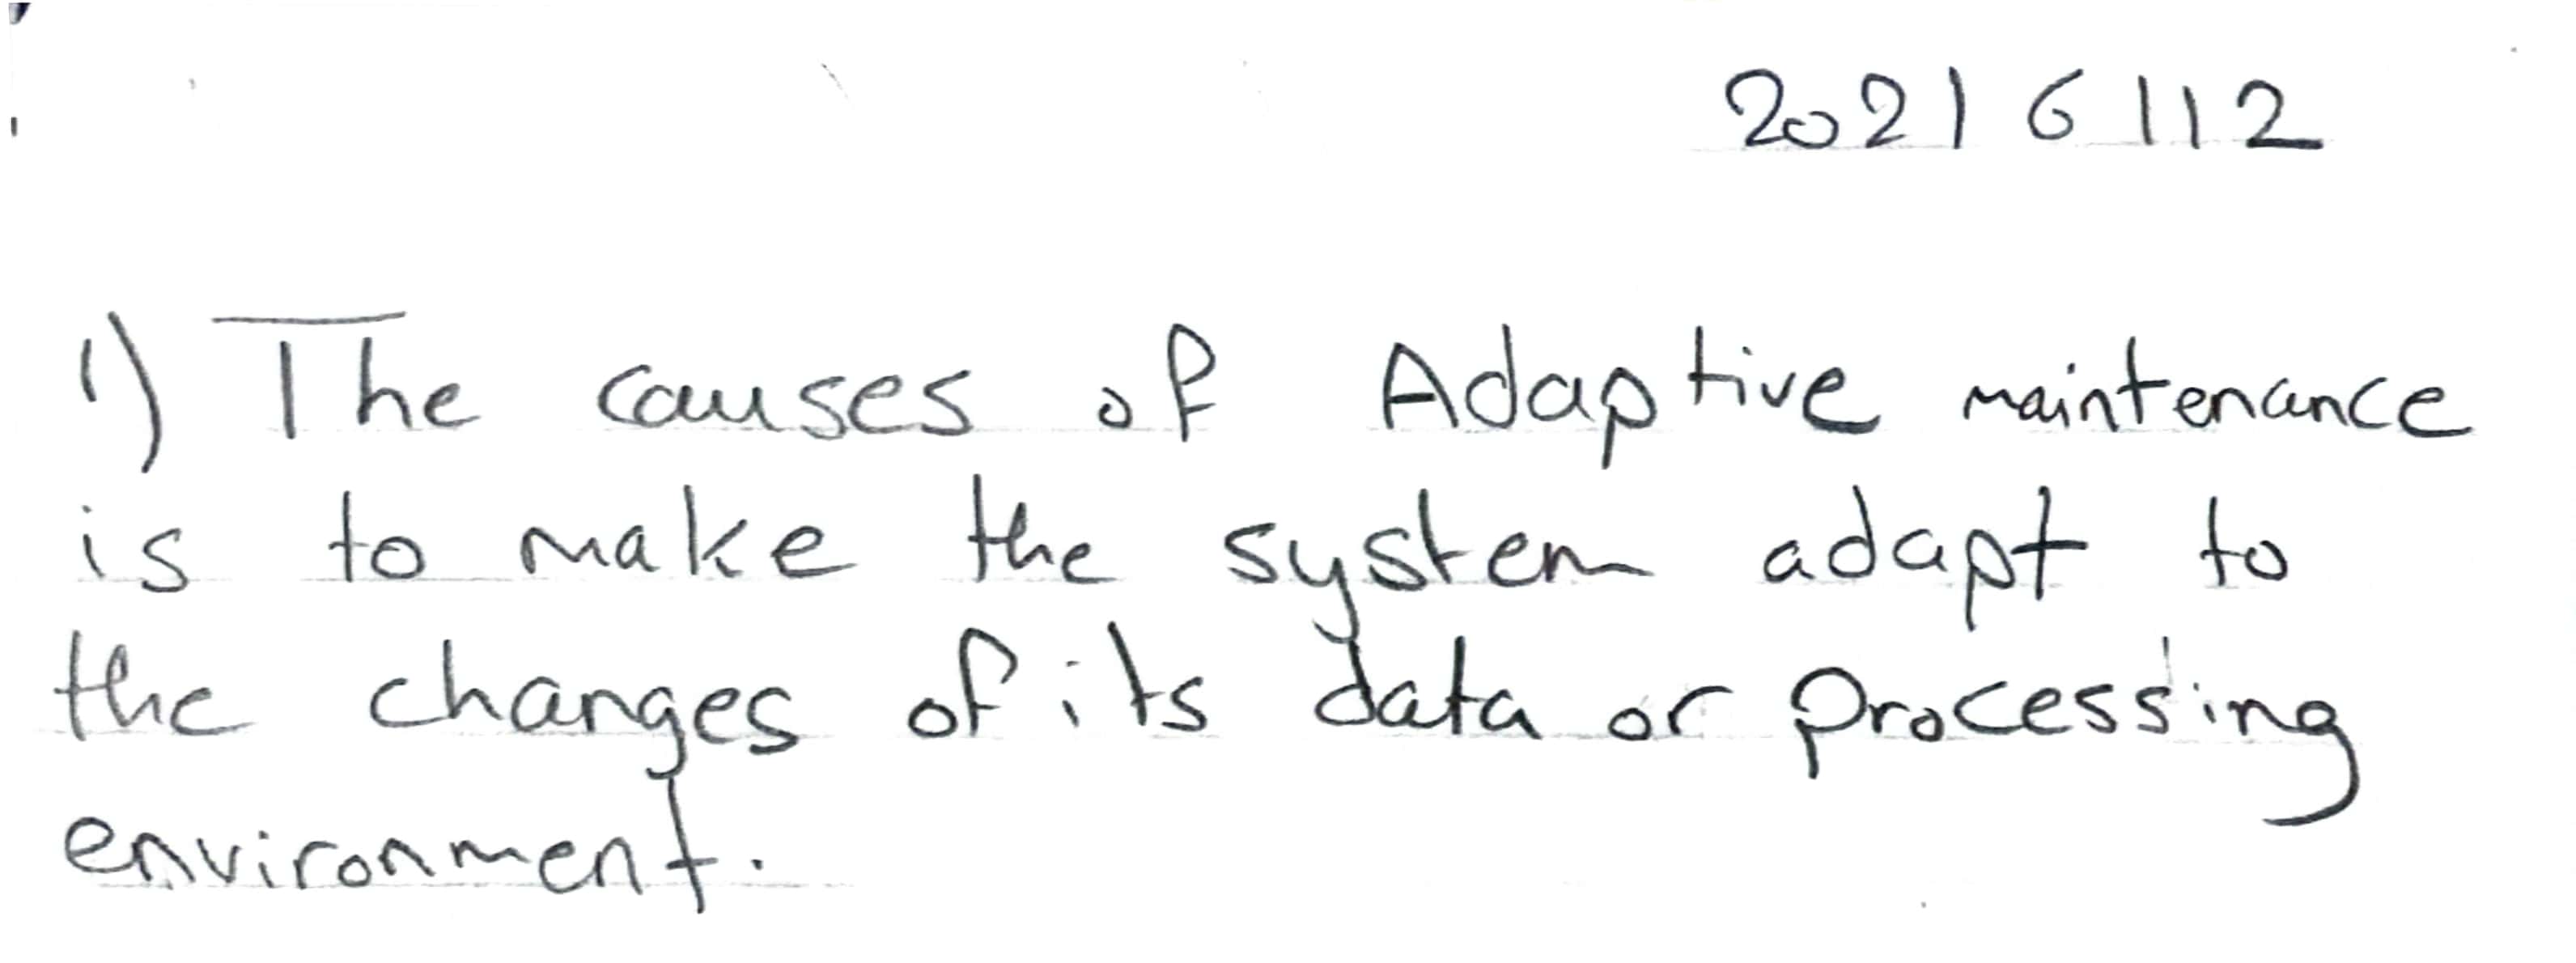 20216112
1) The causes of Adaptive maintenance
is to make the system adapt to
the changes of its data or processing
environment.